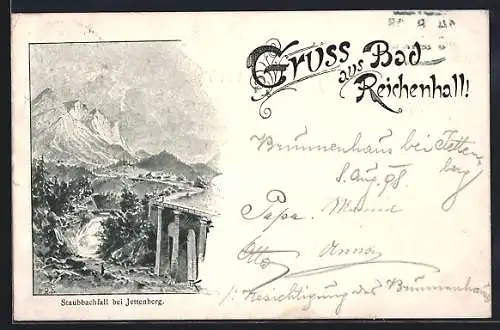 Gruss
aus Bad
Reichenhall!
Brunnenhaus bei Jetten-
berg
8. Aug. 98.
Papa. Mama
Otto Anna
/: Besichtigung des Brunnenhaus
Staubbachfall bei Jettenberg.